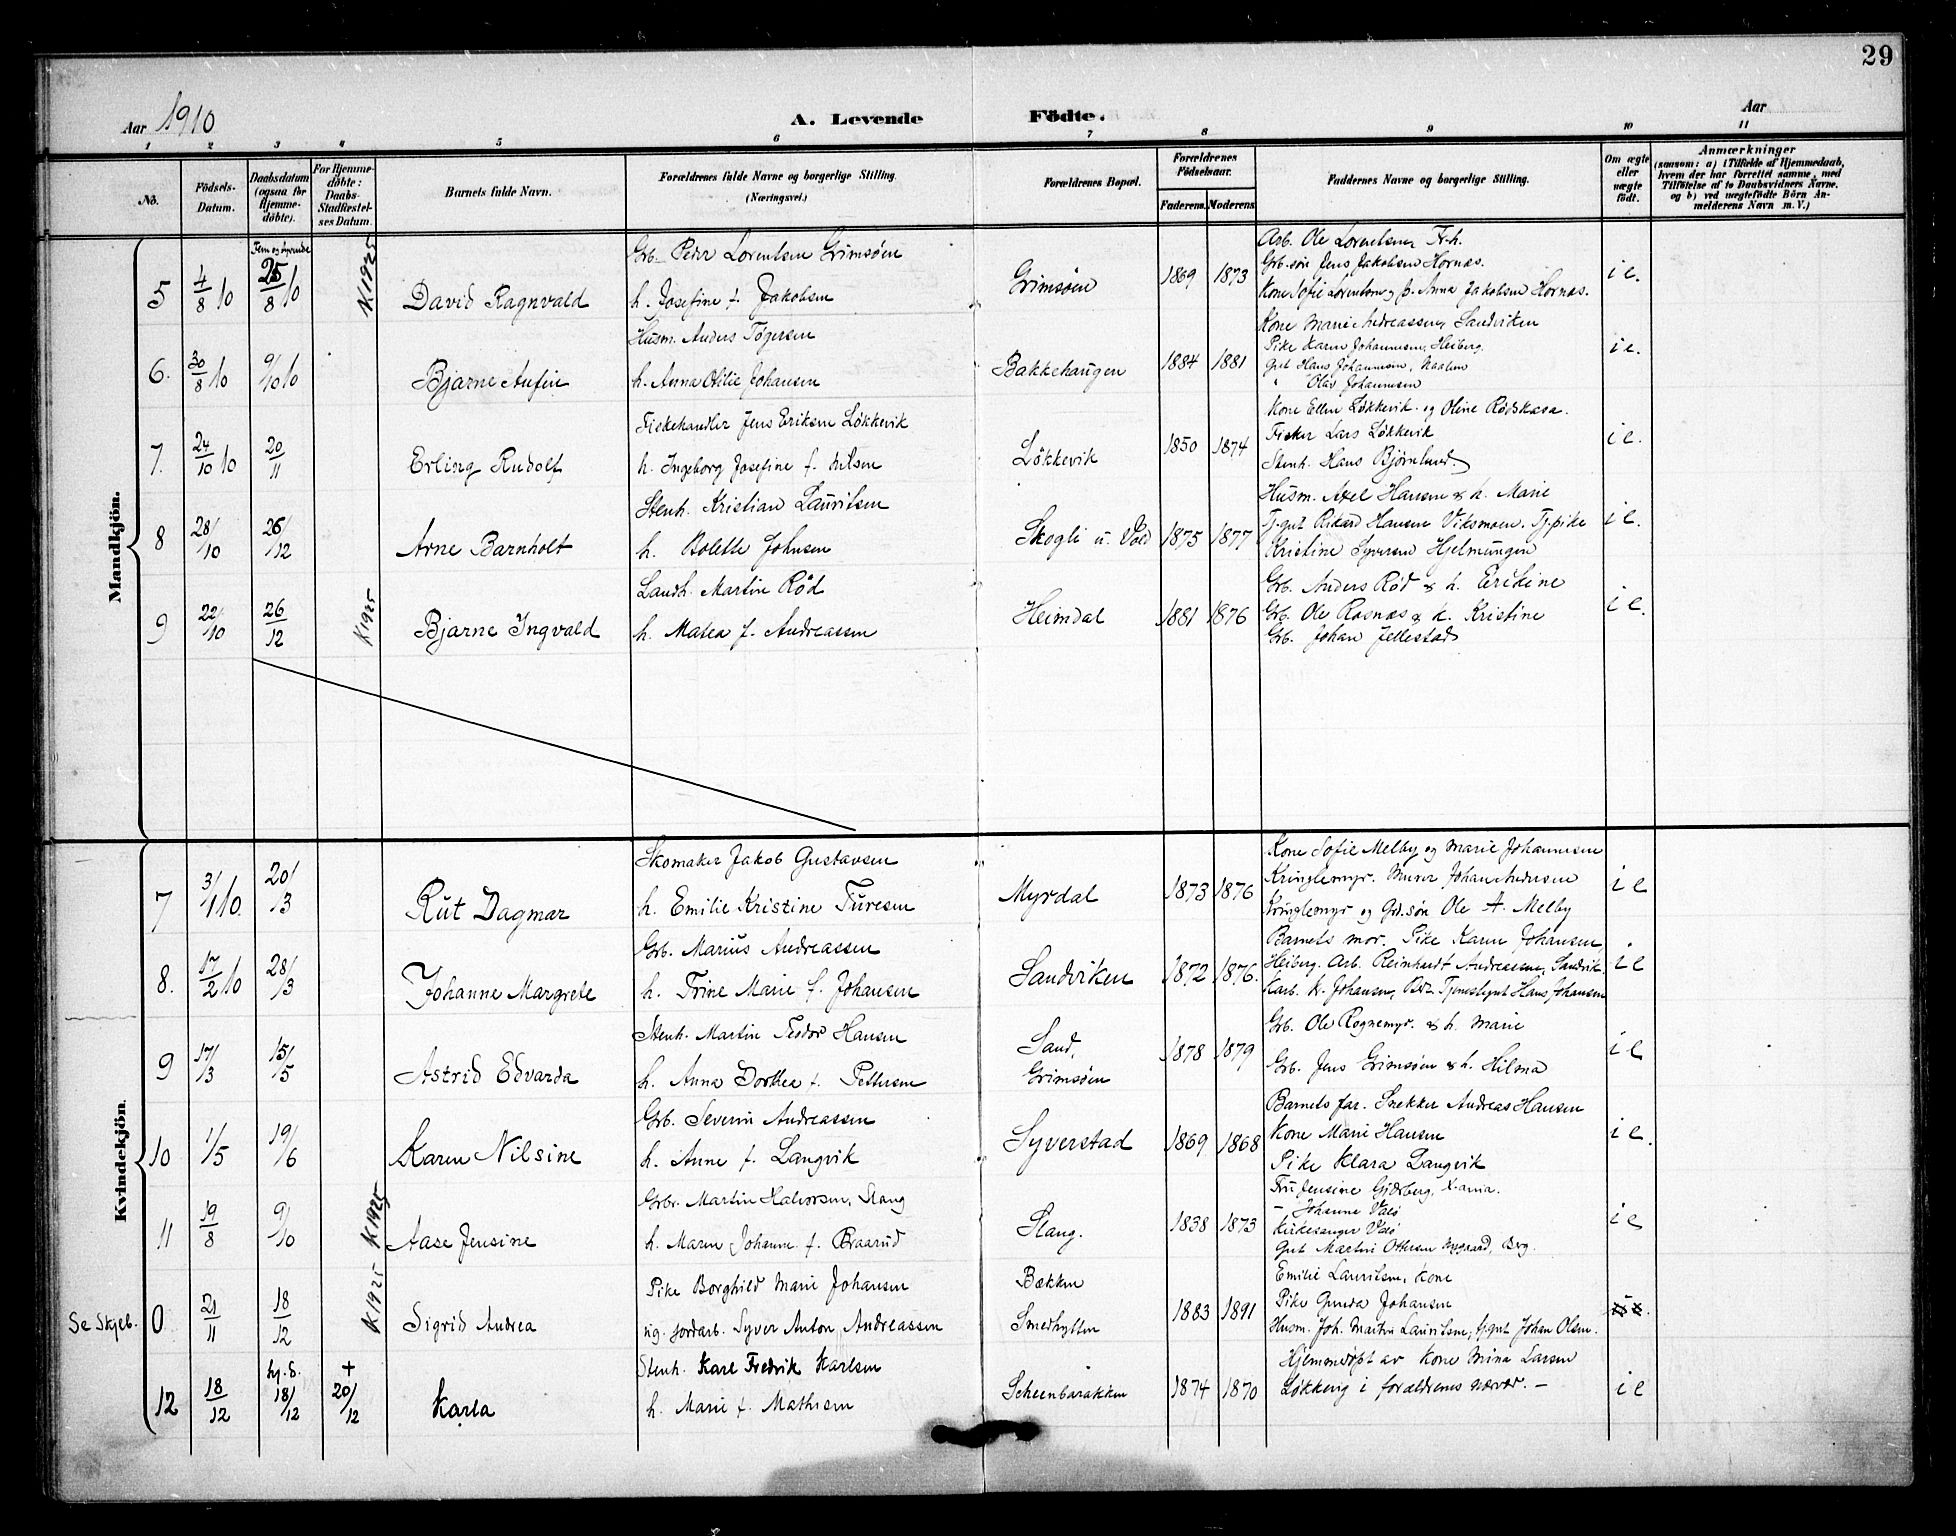 29
Aar 1910
A. Levende Födte.
Aar
1 2 3 4 5 6 7 8 9 10 11
No.
Födsels-Datum.
Daabsdatum (ogsaa for Hjemmedöbte).
For Hjemmedöbte: Daabs-Stadfæstelses Datum.
Barnets fulde Navn.
Forældrenes fulde Navne og borgerlige Stilling
(Næringsvei.)
Forældrenes Bopæl.
Forældrenes Födselsaar.
Faderens. Moderens.
Faddernes Navne og borgerlige Stilling.
Om ægte eller uægte födt.
Anmærkninger
(saasom: a) i Tilfælde af Hjemmedaab,
hvem der har forrettet samme, med
Tilföielse af to Daabsvidners Navne,
og b) ved uægtefödte Börn An-
melderens Navn m. V.)
Mandkjön.
5 4/8 10 Fem og tyvende 25/8 10 K 1925 David Ragnvald
Grb. Peder Lorentsen Grimsøen
h. Josefine f. Jakobsen
Grimsøen 1869 1873
Arb. Ole Lorentsen, Fr.h.
Grb. søn Jens Jakobsen Hornæs.
Kone Sofie Lorentsen og p. Anna Jakobsen Hornæs.
i e.
6. 30/8 10 9/10 10 Bjarne Anfin
Husm. Anders Tøgersen
h. Anna Otilie Johansen
Bakkehaugen 1884 1881
Kone Marie Andreassen, Sandviken
Pike Karen Johannesen, Heiberg.
Gut Hans Johannesen,
" Olav Johannesen
i e.
7. 24/10 10 20/11 Erling Rudolf
Fiskehandler Jens Eriksen Løkkevik
h. Ingeborg Josefine f. Nilsen
Løkkevik 1850 1874
Kone Ellen Løkkevik og Oline Rødskasa.
Fisker Lars Løkkevik
Stenh. Hans Bjørnlund.
i e.
8 28/10 26/12 Arne Barnholt
Stenh. Kristian Lauritsen
h. Bolette Johnsen
Skogli u. Vold 1875 1877
Husm. Axel Hansen & h. Marie
Tj.gut Rikard Hansen Viksmoen. Tj.pike
Kristine Syversen Hjelmungen
i e.
9 22/10 26/12 K 1925 Bjarne Ingvald
Landh. Martin Rød
h. Matea f. Andreassen
Heimdal 1881 1876
Grb. Anders Rød & h. Erikine
Grb. Ole Rosnæs & h. Kristine
Grb. Johan Jellestad
i e.
Kvindekjön.
7 3/1 10. 20/3 Rut Dagmar
Skomaker Jakob Gustavsen
h. Emilie Kristine Turesen
Myrdal 1873 1876
Kone Sofie Melby og Marie Johannesen
Kringlemyr. Murer Johan Andersen
Kringlemyr og Grb.søn Ole A. Melby
i e
8. 17/2 10 28/3 Johanne Margrete
Grb. Marius Andreassen
h. Trine Marie f. Johansen
Sandviken 1872 1876.
Barnets mor. Pike Karen Johansen
Heiberg. Arb. Reinhardt Andreassen, Sandvik.
Karb. K. Johansen, Tjenestegut Hans Johansen
i e
9 17/3 15/5 Astrid Edvarda
Stenh. Martin Teodor Hansen
h. Anna Dorthea f. Pettersen
Sand, Grimsøen 1878 1879
Grb. Ole Rognemyr. & h. Marie
Grb. Jens Grimsøen & h. Hilma
i e
10 1/5 19/6 Karen Nilsine
Grb. Severin Andreassen
h. Anne f. Langvik
Syverstad 1869 1868
Barnets far. Snekker Andreas Hansen
Kone Marie Hansen
Pike Klara Langvik
i e.
11 19/8 9/10 K 1925 Aase Jensine
Grbr. Martin Halvorsen, Stang
h. Maren Johanne f. Braarud
Stang. 1838 1873
Fru Jensine Gjærberg, Xania.
— Johanne Valø
Kirkesanger Valø
Gut Martin Ottersen Nygaard, Berg.
i e
Se Skjeb. 0 21/11 18/12 K 1925 Sigrid Andrea
Pike Borghild Marie Johansen
ug. jordarb. Syver Anton Andreassen
Bækken
Smedhytten 1883 1891
Emilie Lauritsen, Kone
Pike Gunda Johansen
Husm. Joh. Martin Lauritsen, tj.gut Johan Olsen.
12 18/12 hj.d. 18/12 + 20/12 Karla
Stenh. Karl Fredrik Karlsen
h. Marie f. Mathisen
Scheenbarakken 1874 1870
Hjemmedøpt av Kone Mina Larsen
Løkkevig i forældrenes nærvær. —
i e